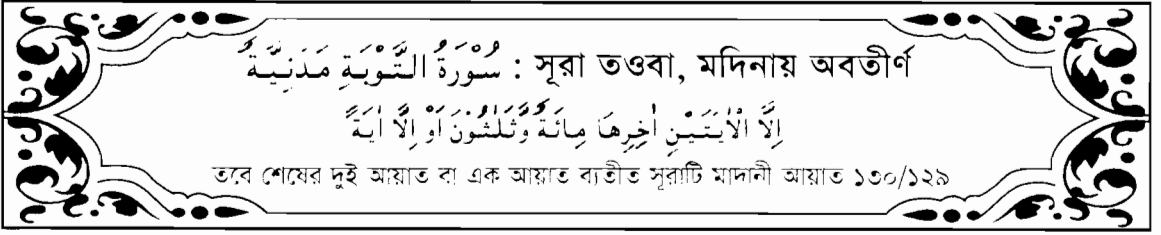 سُوْرَةُ التَّوْبَةِ مَدَنِيَّةٌ : সূরা তওবা, মদিনায় অবতীর্ণ
إِلَّا الْاٰيَتَيْنِ اٰخِرِهَا مِائَةٌ وَّثَلٰثُوْنَ اَوْ اِلَّا اٰيَةً
তবে শেষের দুই আয়াত বা এক আয়াত ব্যতীত সূরাটি মাদানী আয়াত ১৩০/১২৯